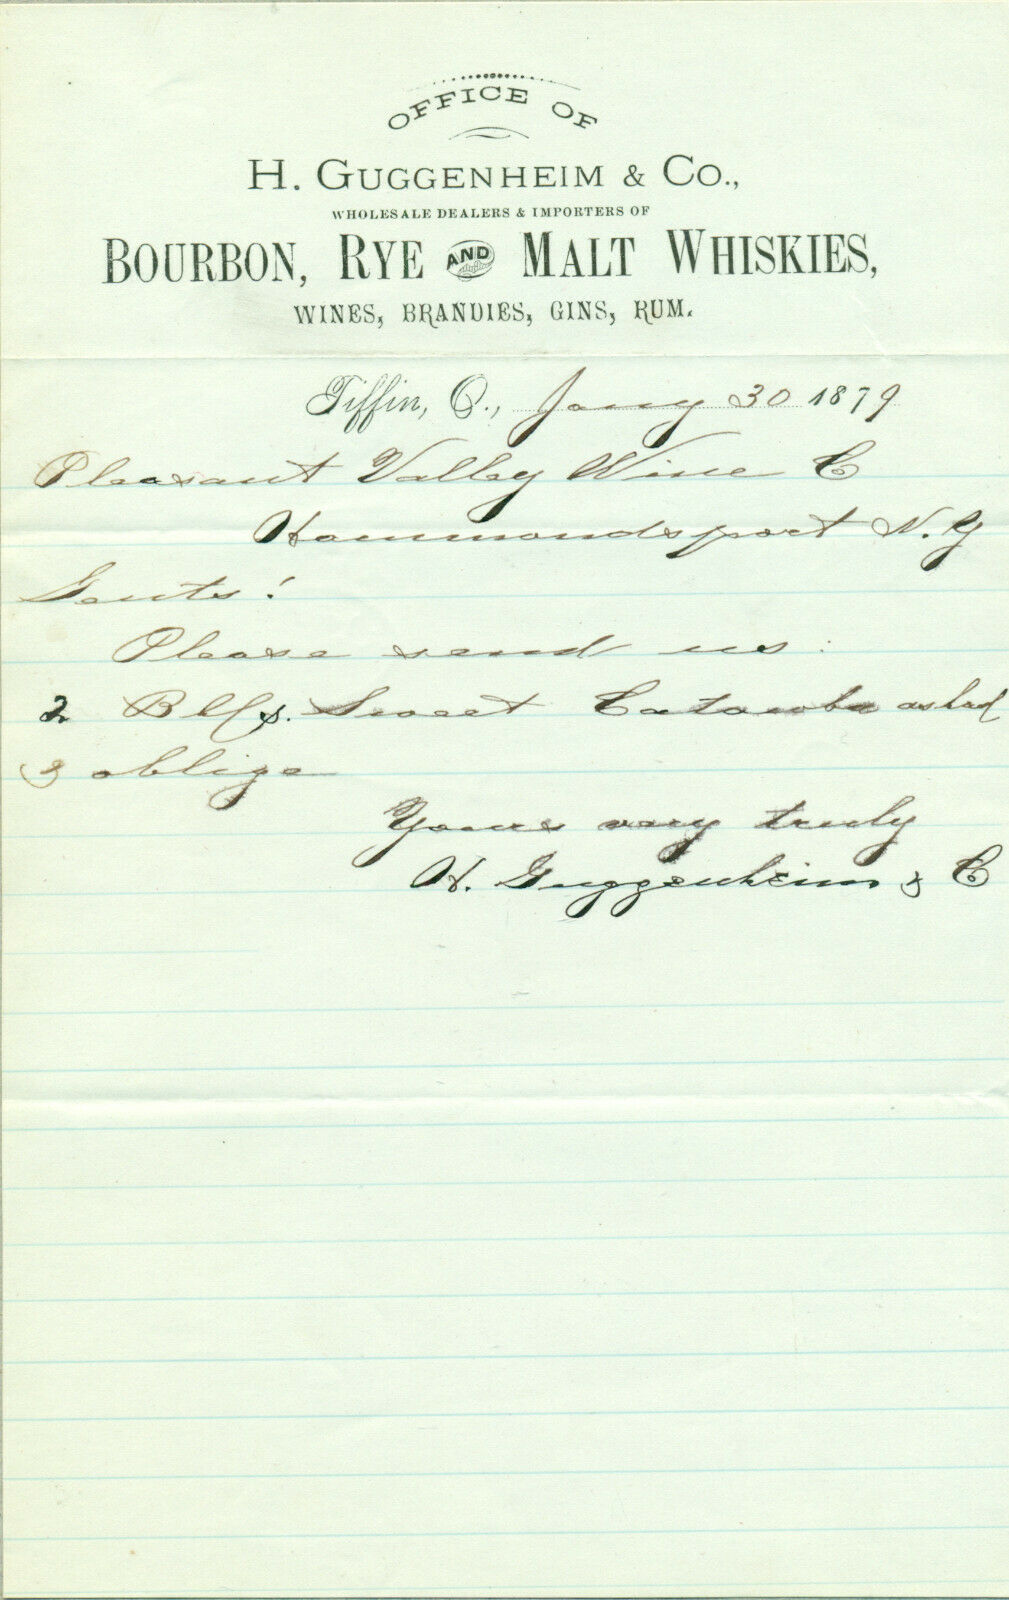 OFFICE OF
H. GUGGENHEIM & CO.,
WHOLESALE DEALERS & IMPORTERS OF
BOURBON, RYE AND MALT WHISKIES,
WINES, BRANDIES, GINS, RUM.
Tiffin, O., Jany 30 1879
Pleasant Valley Wine C
Hammondsport N.Y
Gents!
Please send us:
2 Bbls. Sweet Catawba as had
& oblige
Yours very truly
H. Guggenheim & C